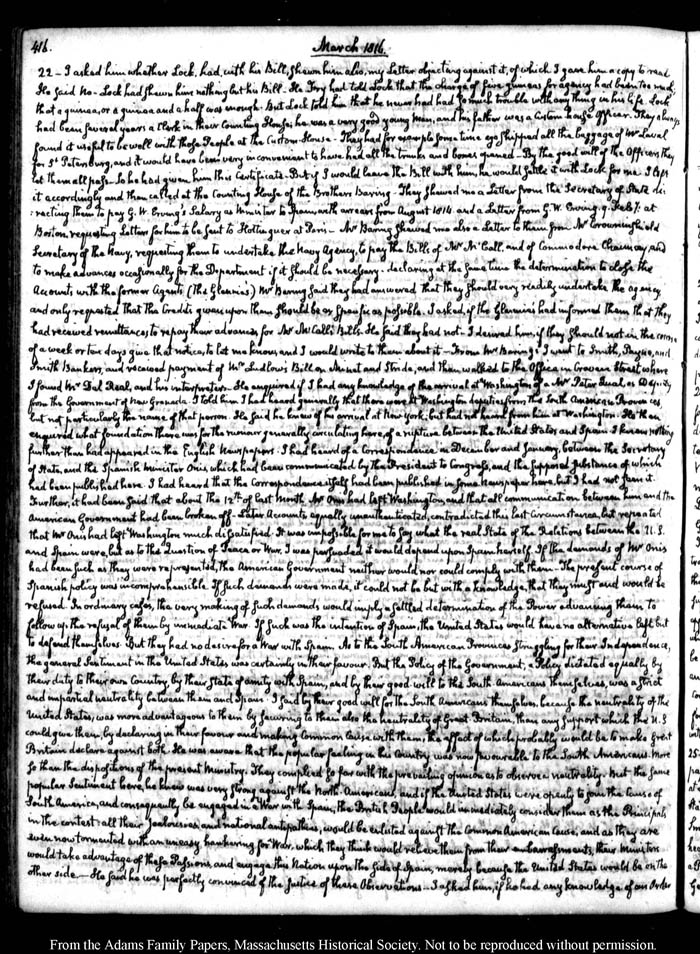 416.
March 1816.
22 – I asked him whether Lock, had, with his Bill, shewn him also, my Letter objecting against it, of which I gave him a copy to read
He said no – Lock had shewn him nothing but his Bill. He had told Lock that the charge of five guineas for agency had been too much,
that a guinea, or a guinea and a half was enough. But Lock told him that he never had had so much trouble with any thing in his life. Lock
had been several years a Clerk in their Counting House; he was a very good young Man, and his father was a Custom house Officer. They always
found it useful to be well with those People at the Custom-House – They had for example some time ago shipped all the baggage of Mr Laval
for St Petersburg, and it would have been very inconvenient to have had all the trunks and boxes opened – By the good will of the Officers, they
let them all pass. So he had given him this Certificate. But if I would leave the Bill with him, he would settle it with Lock for me. I left
it accordingly and then called at the Counting House of the Brothers Baring. They shewed me a Letter from the Secretary of State di:
:recting them to pay G. W. Erving's Salary as Minister to Spain with arrears from August 1814 and a Letter from G. W. Erving. 9. Feby. at
Boston requesting Letters for him to be sent to Hottinguer at Paris – Mr Baring shewed me also a Letter to them from Mr Crowninshield
Secretary of the Navy, requesting them to undertake the Navy Agency, to pay the Bills of Mr McCall, and of Commodore Chauncey, and
to make advances occasionally for the Department if it should be necessary: declaring at the same time the determination to close the
Accounts with the former Agents (The Glennies) Mr Baring said they had answered that they should very readily undertake the agency
and only requested that the Credits given upon them should be as specific as possible. I asked, if the Glennies had informed them that they
had received remittances, to repay their advances for Mr McCall's Bills. He said they had not. I desired him, if they should not in the course
of a week or ten days give that notice, to let me know, and I would write to them about it – From Mr Baring's I went to Smith, Payne, and
Smith Bankers, and received payment of Mr Ludlow's Bill on Minet and Stride, and then walked to the Office in Craven Street where
I found Mr Del Real, and his interpreter. He enquired if I had any knowledge of the arrival at Washington of a Mr Peter Gual, as Deputy
from the Government of New Granada. I told him I had heard generally that there were at Washington deputies from the South American Provinces,
but not particularly the name of that person. He said he knew of his arrival at New York, but had not heard from him at Washington. He then
enquired what foundation there was for the rumour generally circulating here, of a rupture between the United States and Spain. I knew nothing
further than had appeared in the English Newspapers. I had heard of a Correspondence in December and January, between the Secretary
of State, and the Spanish Minister Onis, which had been communicated by the President to Congress, and the supposed substance of which
had been published here. I had heard that the Correspondence itself had been published in some Newspaper here, but I had not seen it.
Further, it had been said that about the 12th of last Month Mr Onis had left Washington, and that all communication between him and the
American Government had been broken off – Later Accounts equally unauthenticated, contradicted this last circumstance, but repeated
that Mr Onis had left Washington much dissatisfied. It was impossible for me to say what the real State of the Relations between the U.S.
and Spain were, but as to the Question of Peace or War, I was persuaded it would depend upon Spain herself. If the demands of Mr Onis
had been such as they were represented, the American Government neither would nor could comply with them. The present course of
Spanish policy was incomprehensible. If such demands were made, it could not be but with a knowledge, that they must and would be
refused. In ordinary cases, the very making of such demands would imply a settled determination of the Power advancing them to
follow up the refusal of them by immediate War. If such was the intention of Spain, the United States would have no alternative left but
to defend themselves. But they had no desire for a War with Spain. As to the South American Provinces struggling for their Independence,
the general Sentiment in the United States was certainly in their favour. But the Policy of the Government, a Policy dictated equally by
their duty to their own Country by their state of amity with Spain, and by their good will to the South Americans themselves, was a strict
and impartial neutrality between them and Spain. I said by their good will for the South Americans themselves, because the neutrality of the
United States, was more advantageous to them by securing to them also the neutrality of Great Britain, than any support which the U.S
could give them by declaring in their favour and making Common Cause with them, the effect of which probably would be to make Great
Britain declare against both. He was aware that the popular feeling in his Country was now favourable to the South Americans, more
so than the dispositions of the present Ministry. They complied so far with the prevailing opinion as to observe a neutrality. But the same
popular Sentiment here, he knew was very strong against the North Americans, and if the United States were openly to join the Cause of
South America, and consequently be engaged in a War with Spain, the British People would immediately consider them as the Principals
in the contest; all their jealousies, and national antipathies, would be enlisted against the Common American Cause, and as they are
even now tormented with an uneasy hankering for War, which they think would relieve them from their embarrassments, their Ministers
would take advantage of these Passions, and engage this Nation upon the side of Spain, merely because the United States would be on the
other side – He said he was perfectly convinced of the Justice of these Observations – I asked him, if he had any knowledge of an Order
From the Adams Family Papers, Massachusetts Historical Society. Not to be reproduced without permission.